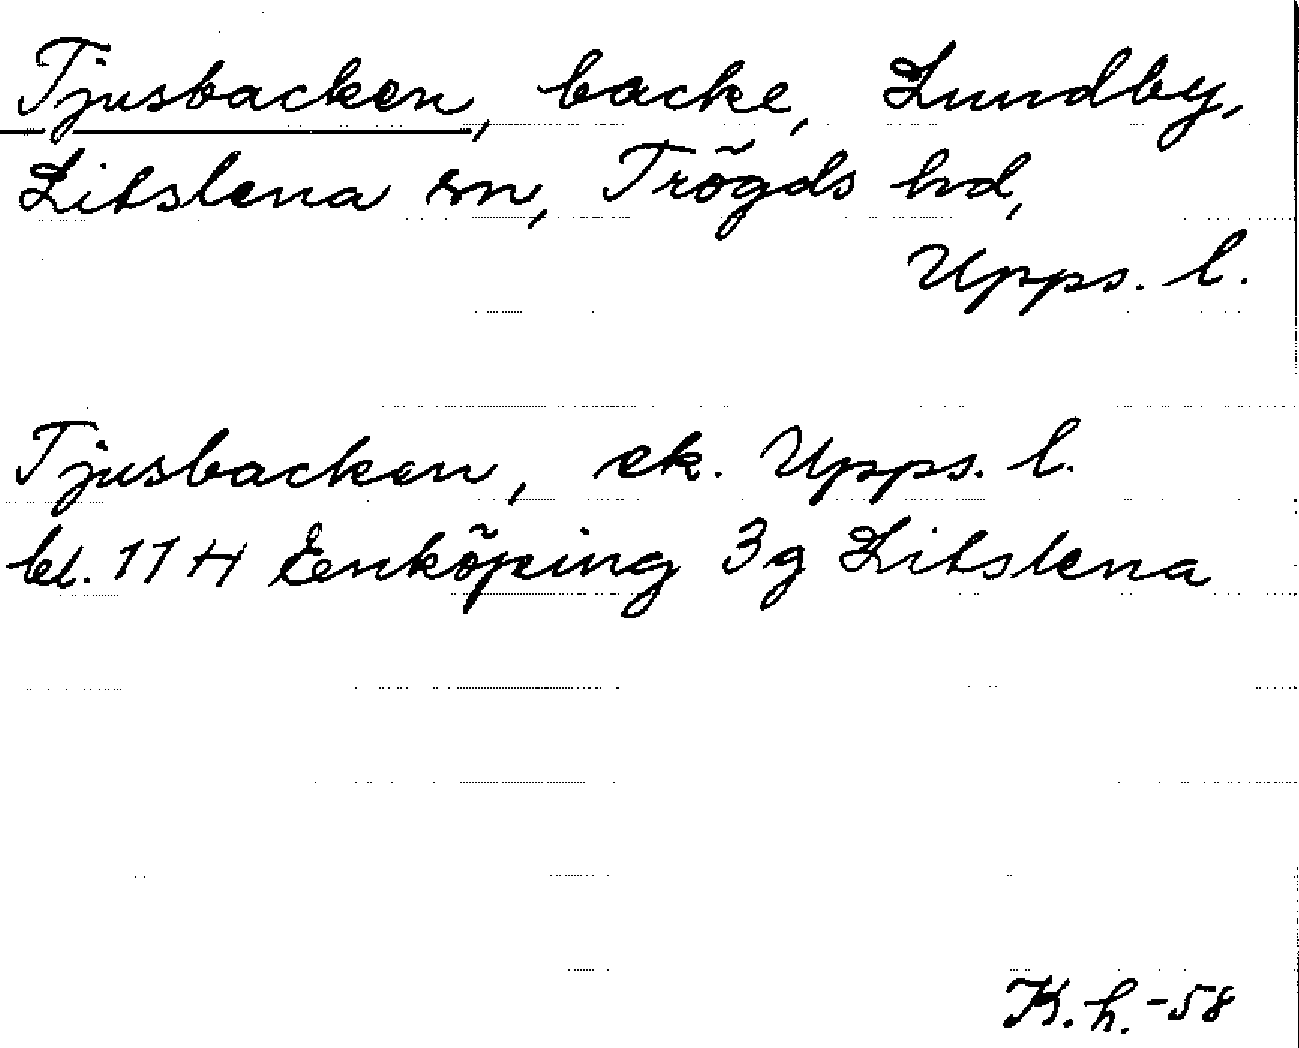 Tjusbacken, backe, Lundby,
Litslena sn, Trögds hd,
Upps. l.
Tjusbacken, ek. Upps. l.
bl. 11 H Enköping 3g Litslena
K.h.-58